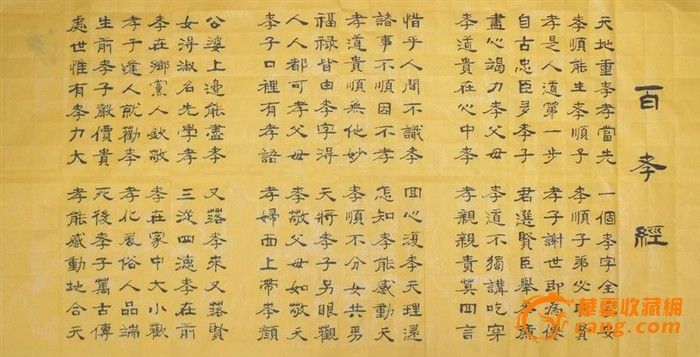 百孝經
天地重孝孝當先 一個孝字全家安
孝順能生孝順子 孝順子弟必明賢
孝是人道第一步 孝子謝世即為僊
自古忠臣多孝子 君選賢臣舉孝廉
盡心竭力孝父母 孝道不獨講吃穿
孝道貴在心中孝 孝親親責莫回言
惜乎人間不識孝 回心復孝天理還
諸事不順因不孝 怎知孝能感動天
孝道貴順無他妙 孝順不分女共男
福祿皆由孝字得 天將孝子另眼觀
人人都可孝父母 孝敬父母如敬天
孝子口裡有孝語 孝婦面上帶孝顏
公婆上邊能盡孝 又落孝來又落賢
女得淑名先學孝 三從四德孝在前
孝在鄉黨人欽敬 孝在家中大小歡
孝子逢人就勸孝 孝化風俗人品端
生前孝子聲價貴 死後孝子萬古傳
處世惟有孝力大 孝能感動地合天
華夏收藏網
cang.com